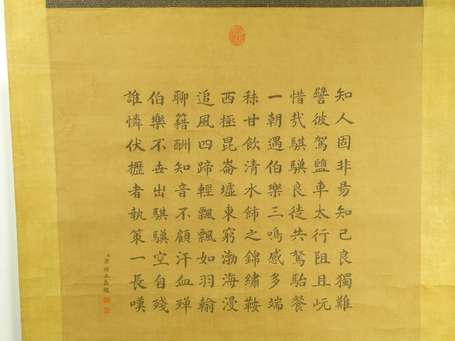 知人固非易知己良獨難
譬彼駕鹽車太行阻且岏
惜哉騏驥良徒共駑駘餐
一朝遇伯樂三鳴感多端
秣甘飲清水飾之錦繡鞍
西極昆崙墟東窮渤海漫
追風四蹄輕飄飄如羽翰
聊籍酬知音不顧汗血殫
伯樂不世出騏驥空自殘
誰憐伏櫪者執策一長嘆